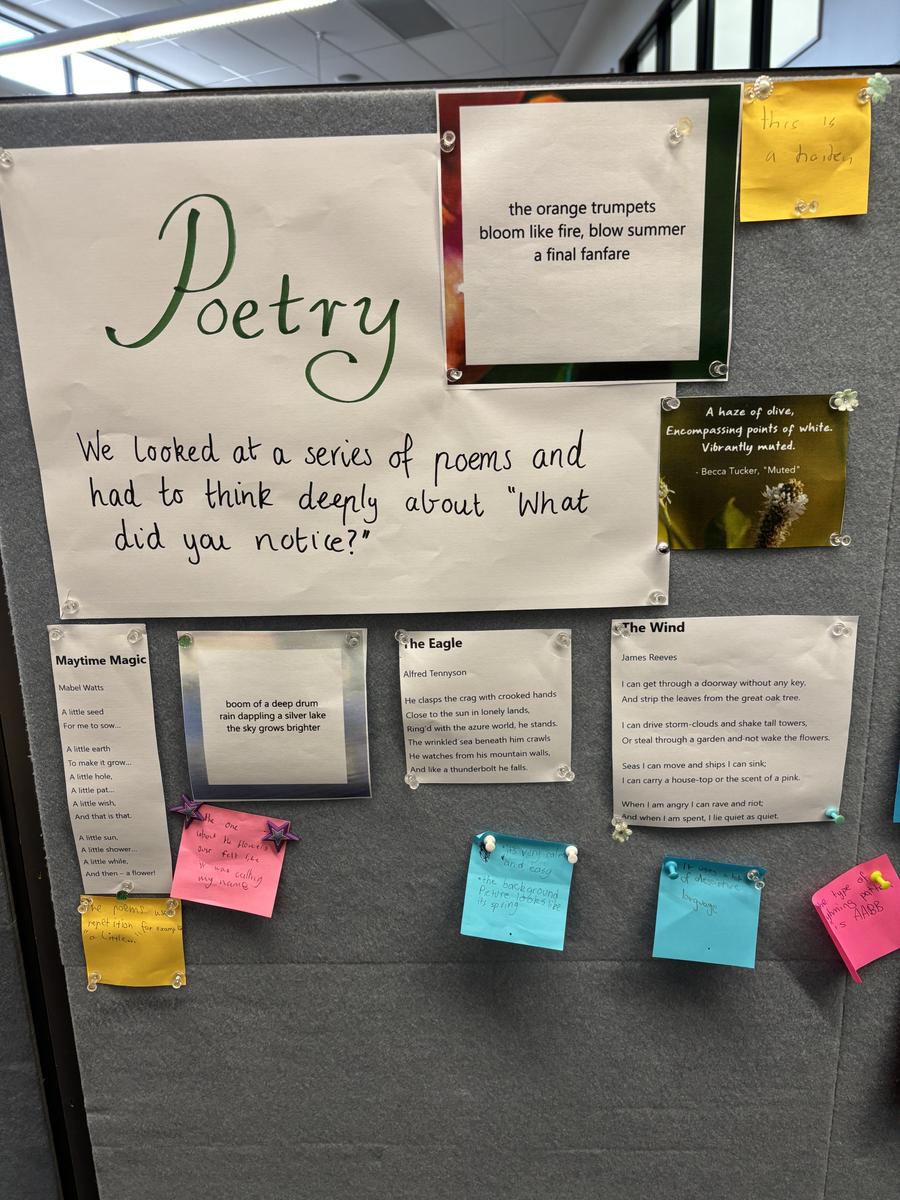 Poetry
We looked at a series of poems and
had to think deeply about "What
did you notice?"
the orange trumpets
bloom like fire, blow summer
a final fanfare
this is
a
A haze of olive,
Encompassing points of white.
Vibrantly muted.
- Becca Tucker, "Muted"
Maytime Magic
Mabel Watts
A little seed
For me to sow...
A little earth
To make it grow...
A little hole,
A little pat...
A little wish,
And that is that.
A little sun,
A little shower...
A little while,
And then – a flower!
boom of a deep drum
rain dappling a silver lake
the sky grows brighter
The Eagle
Alfred Tennyson
He clasps the crag with crooked hands
Close to the sun in lonely lands,
Ring'd with the azure world, he stands.
The wrinkled sea beneath him crawls
He watches from his mountain walls,
And like a thunderbolt he falls.
The Wind
James Reeves
I can get through a doorway without any key,
And strip the leaves from the great oak tree.
I can drive storm-clouds and shake tall towers,
Or steal through a garden and not wake the flowers.
Seas I can move and ships I can sink;
I can carry a house-top or the scent of a pink.
When I am angry I can rave and riot;
And when I am spent, I lie quiet as quiet.
the one
about the flowers
felt like
it was calling
my name
the poems use
repetition for example
"a little..."
its very
and easy
• the background
Picture looks like
its spring
it uses a lot
of
language
type of
is AABB